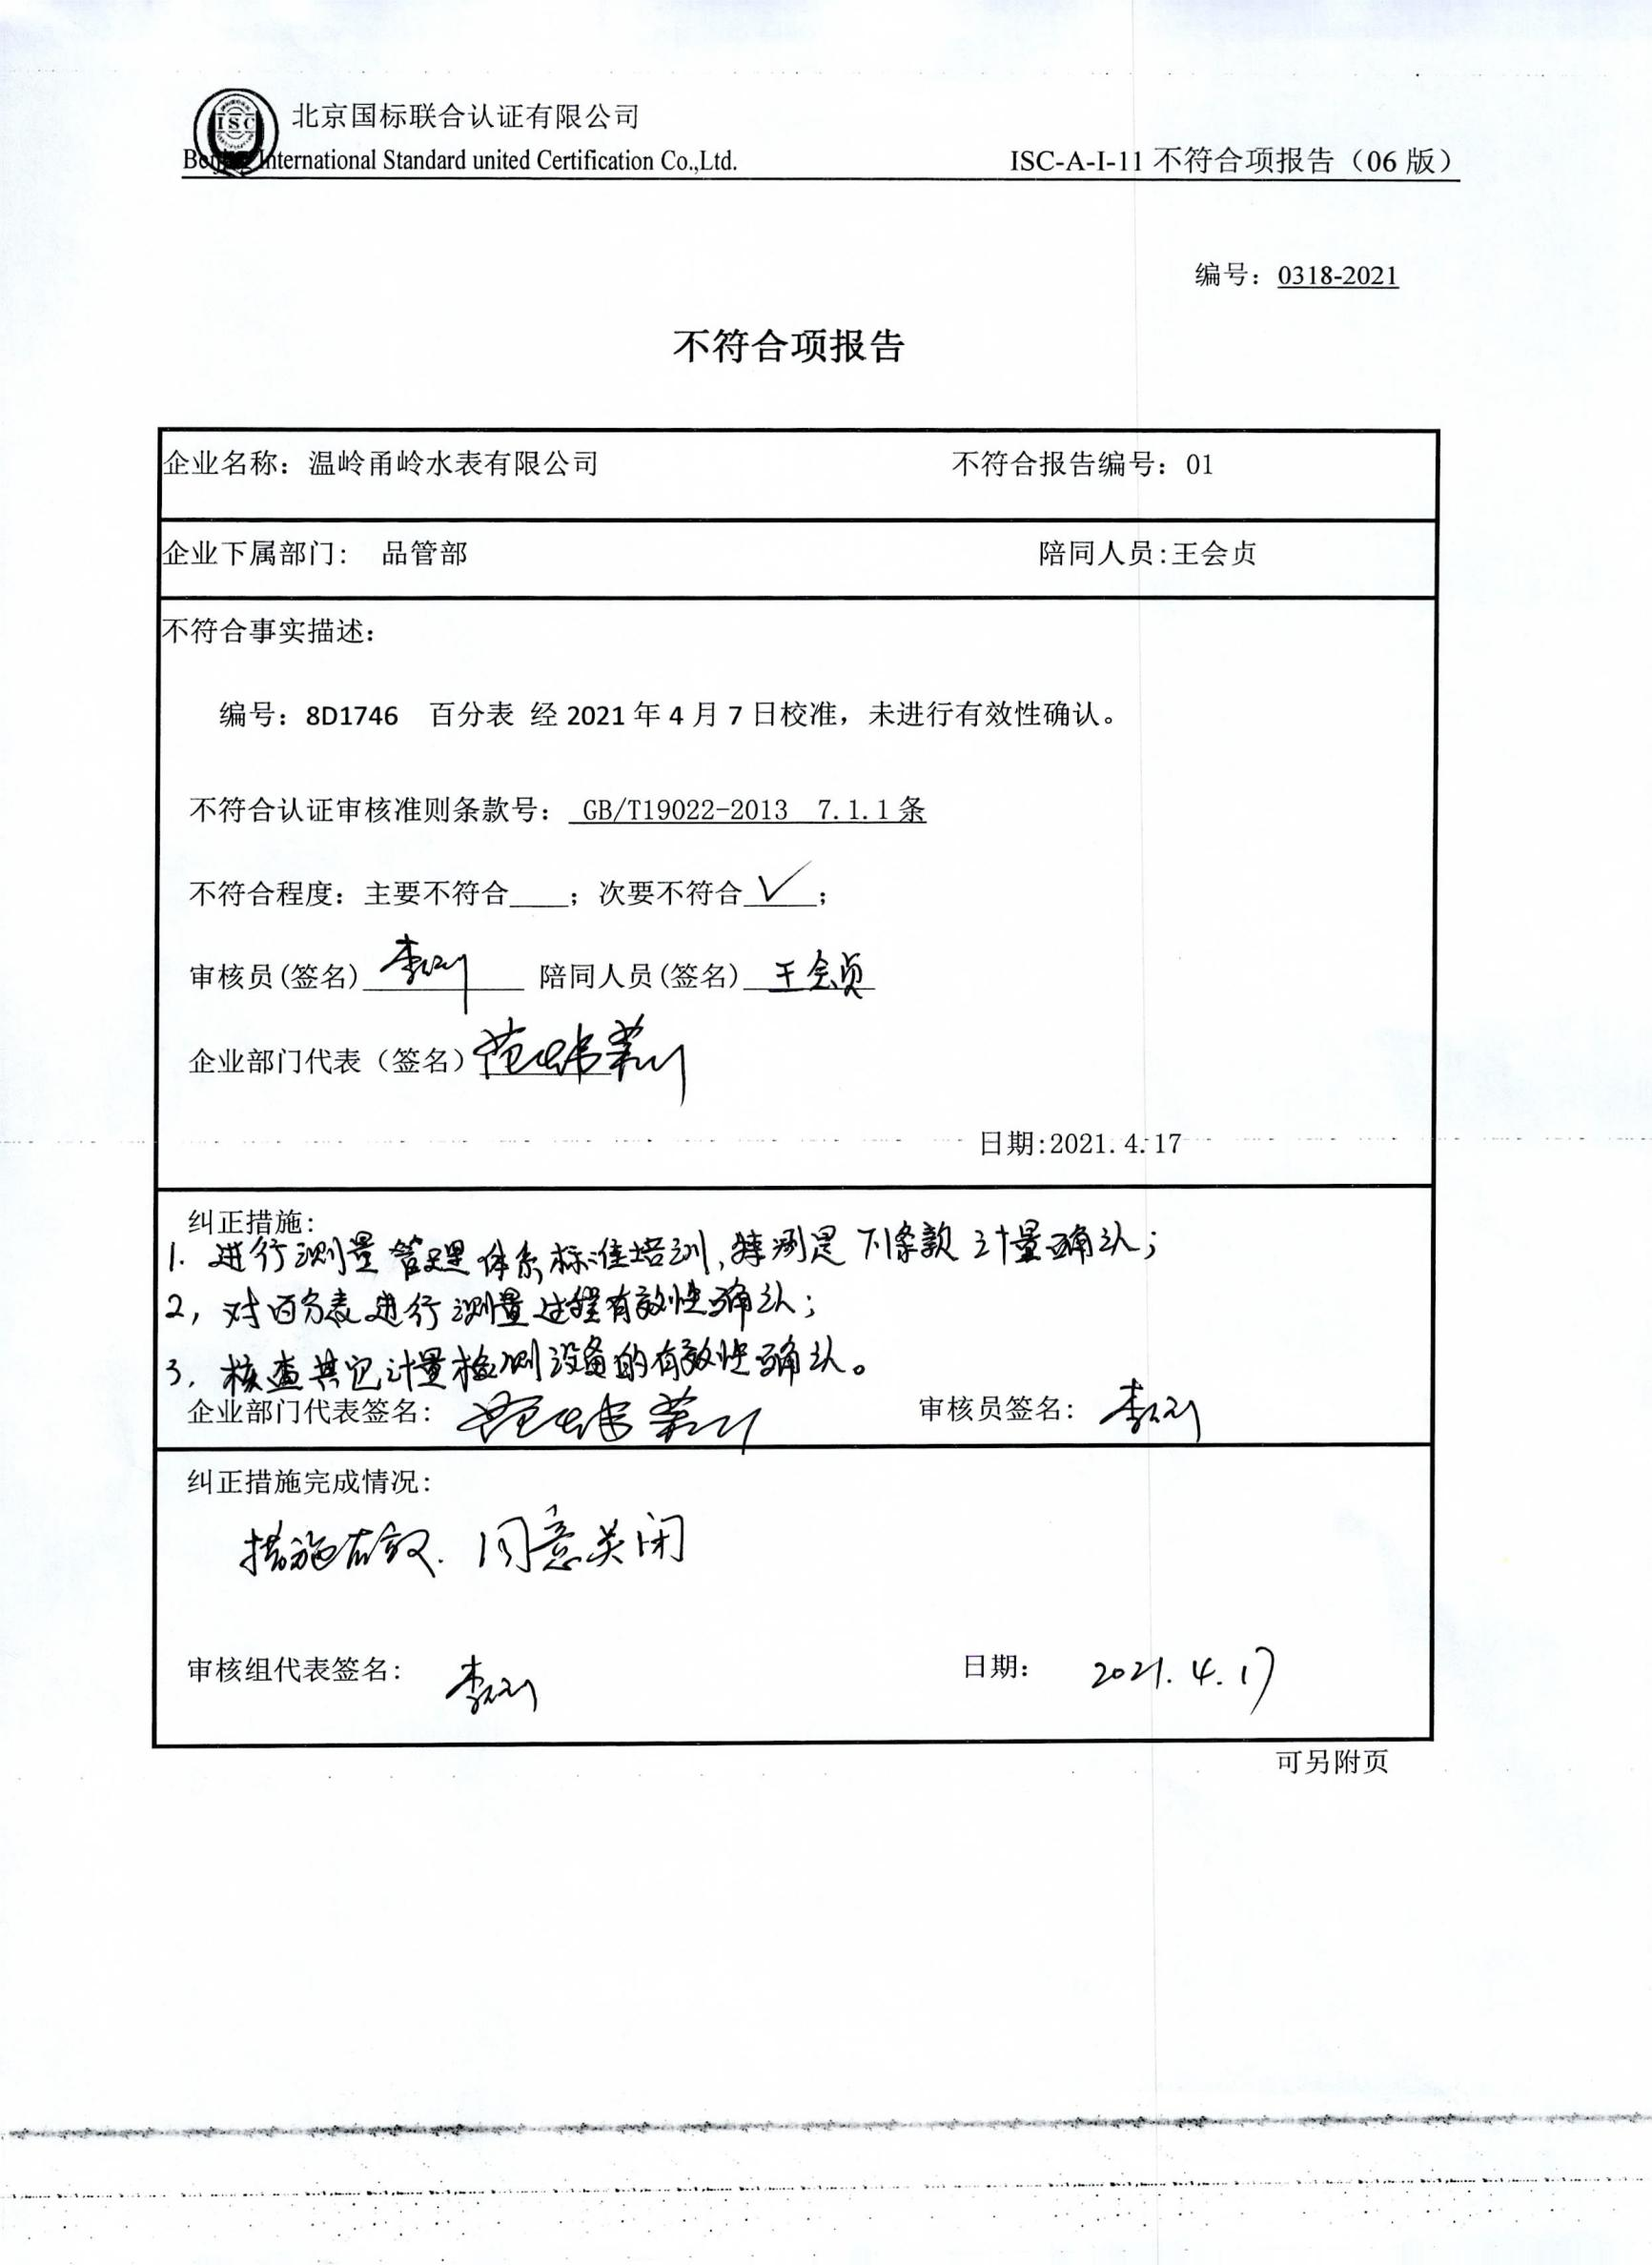 ISC
北京国标联合认证有限公司
International Standard united Certification Co.,Ltd.
ISC-A-I-11 不符合项报告（06 版）
编号：0318-2021
不符合项报告
企业名称：温岭甬岭水表有限公司 不符合报告编号：01
企业下属部门： 品管部 陪同人员:王会贞
不符合事实描述：
编号：8D1746 百分表 经 2021 年 4 月 7 日校准，未进行有效性确认。
不符合认证审核准则条款号： GB/T19022-2013 7.1.1 条
不符合程度：主要不符合____；次要不符合 √ ；
审核员(签名) 陪同人员(签名) 王会贞
企业部门代表（签名）
日期:2021.4.17
纠正措施：
1. 进行测量管理体系标准培训, 条款计量确认；
2, 对百分表进行测量过程有效性确认；
3. 核查其它计量检测设备的有效性确认。
企业部门代表签名： 审核员签名：
纠正措施完成情况：
措施有效. 同意关闭
审核组代表签名： 日期： 2021.4.17
可另附页